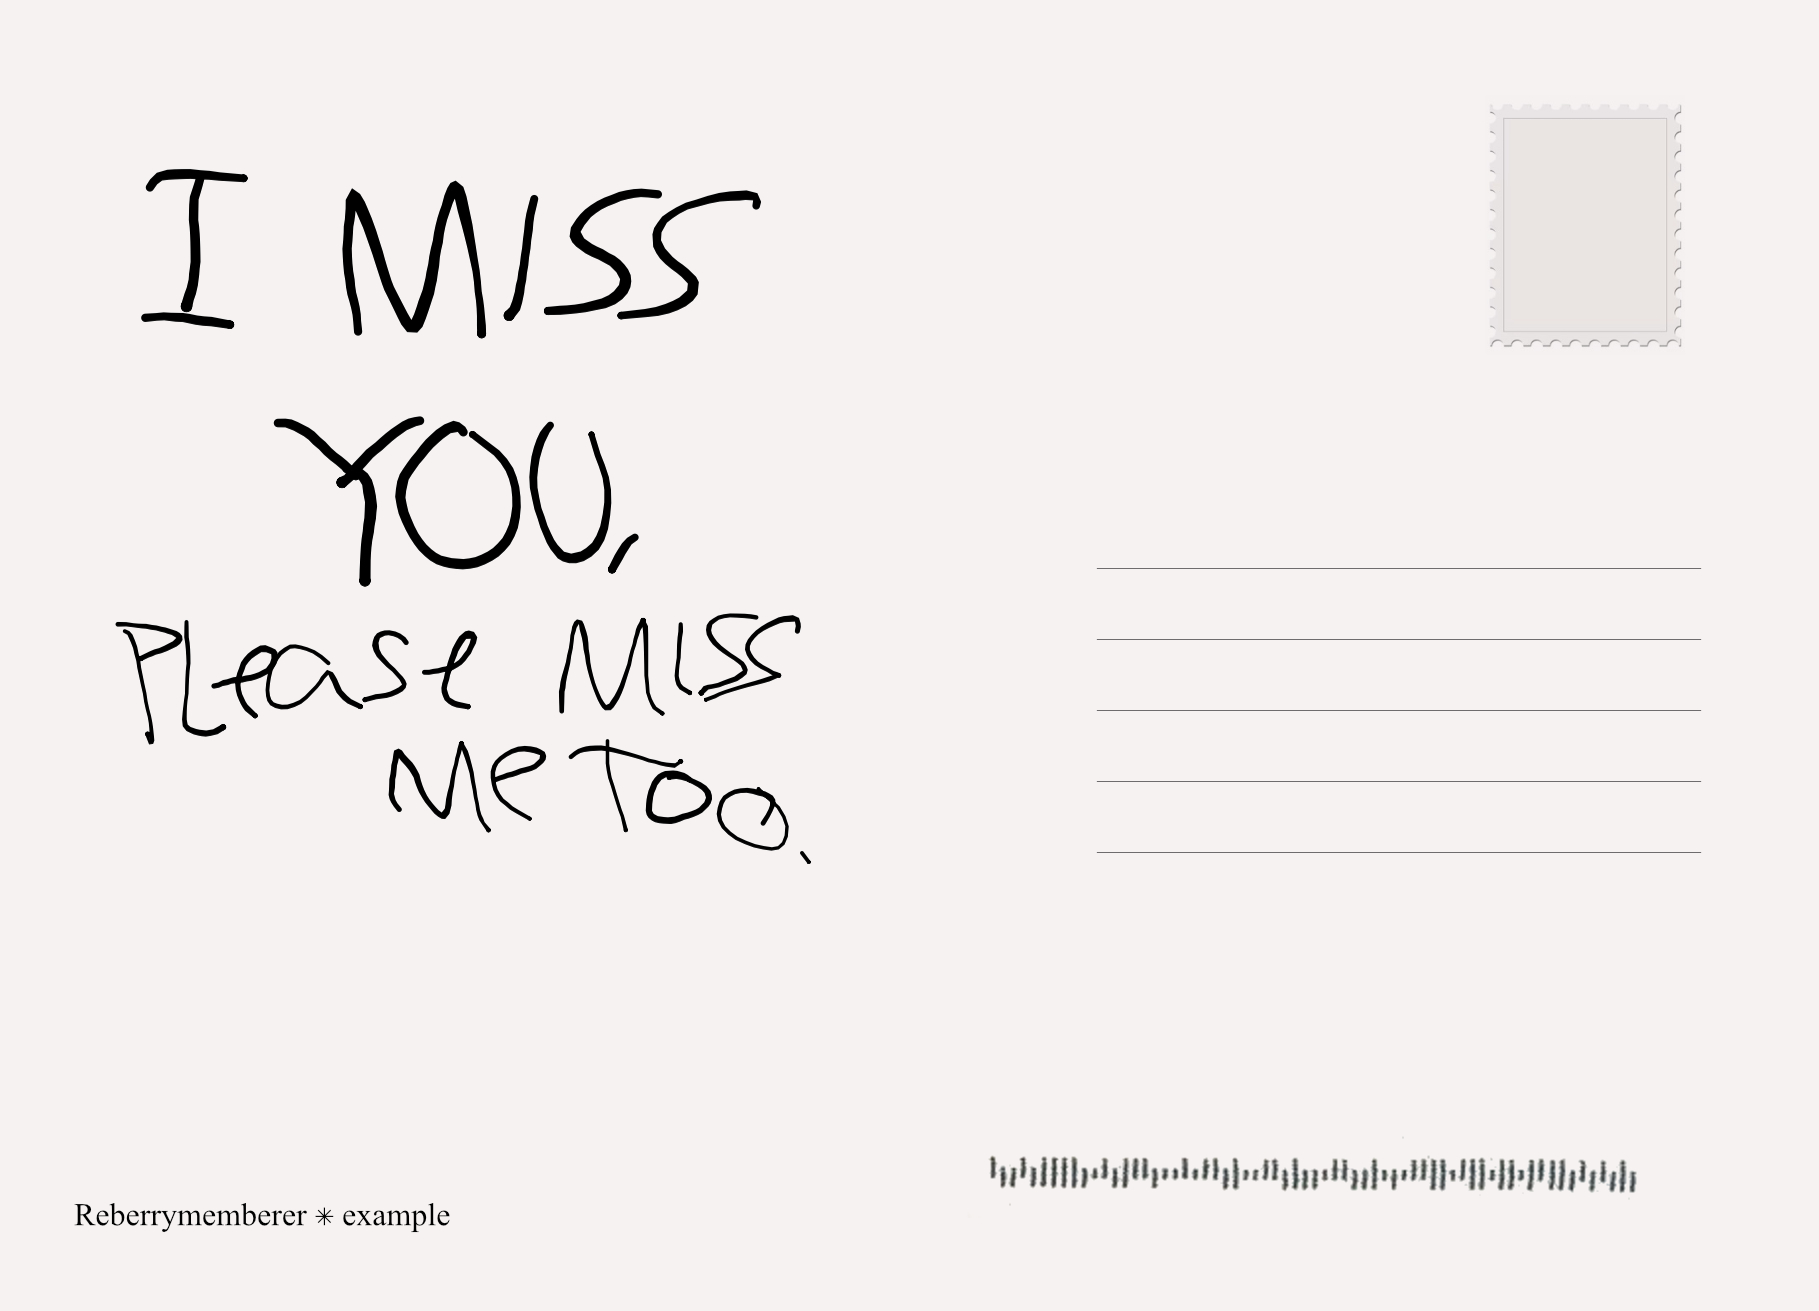 I MISS
YOU,
PLease MISS
Me Too.
Reberrymemberer ✳ example